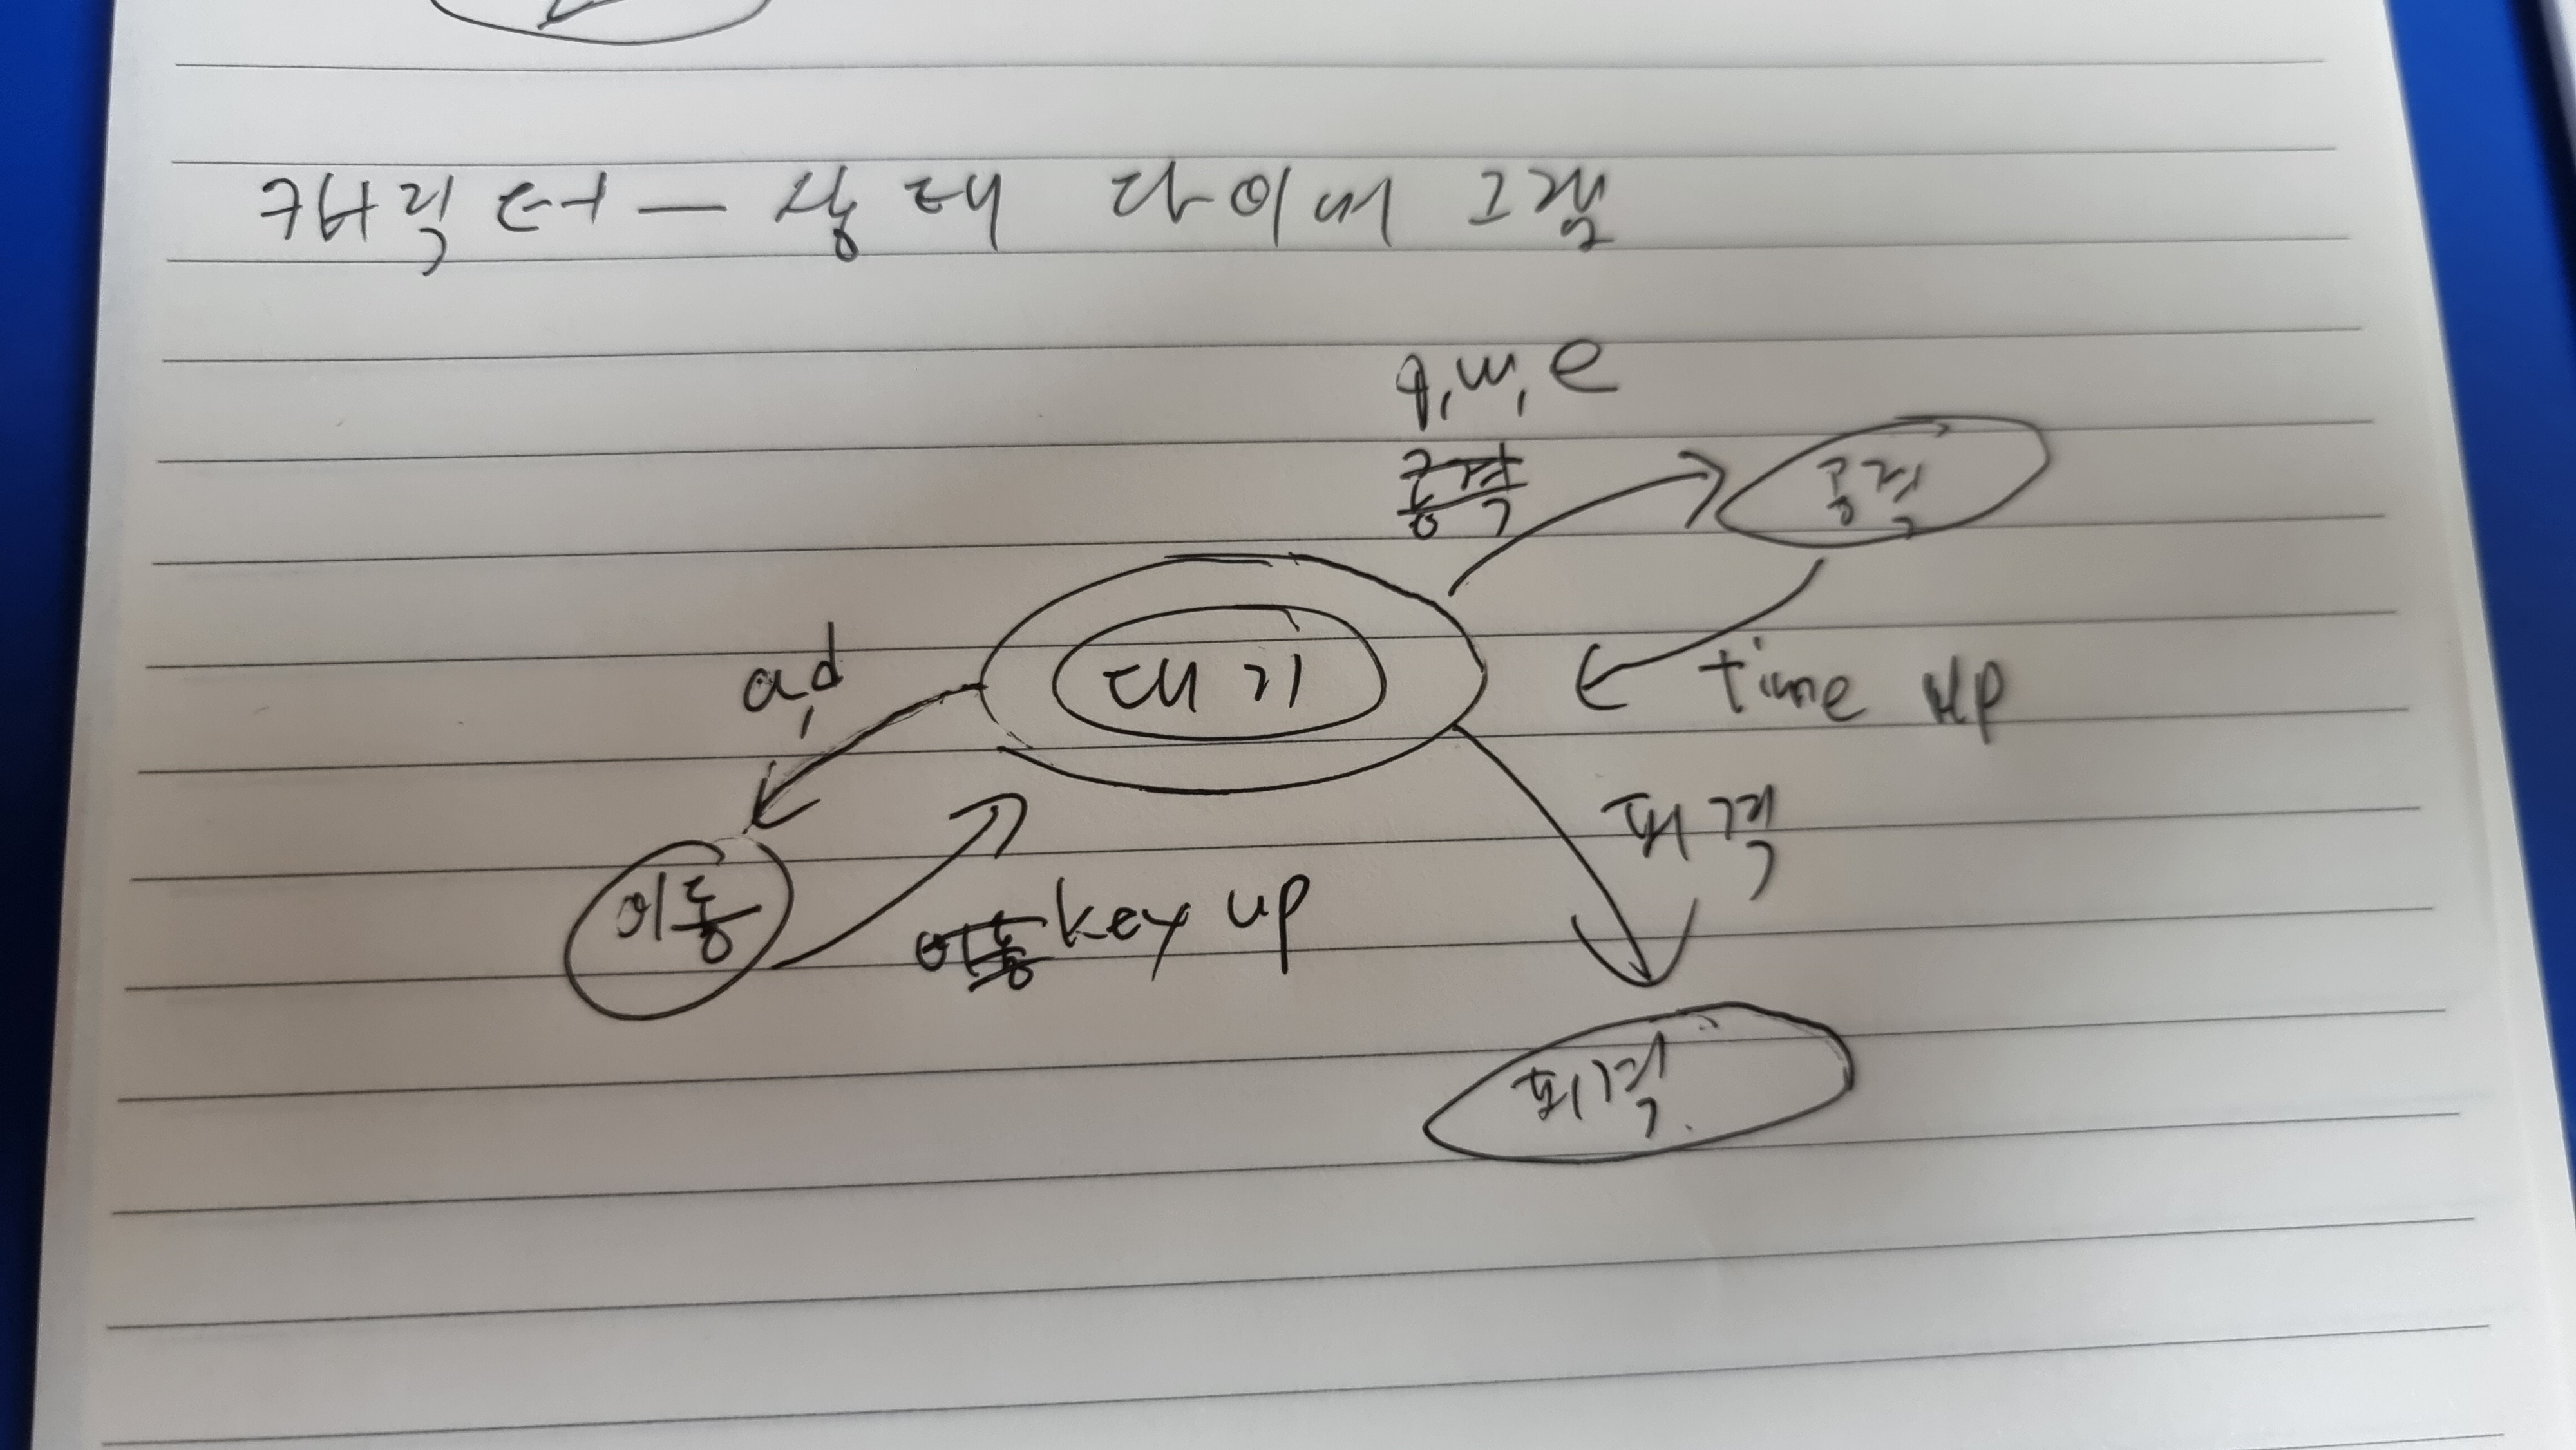 캐릭터 — 상태 다이어그램
q, w, e
공격
공격
a, d
대기
time up
피격
이동
이동 key up
피격